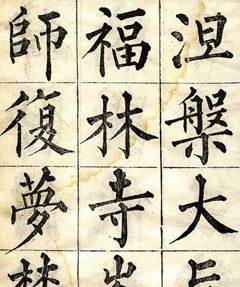 涅槃大
福林寺
師復夢